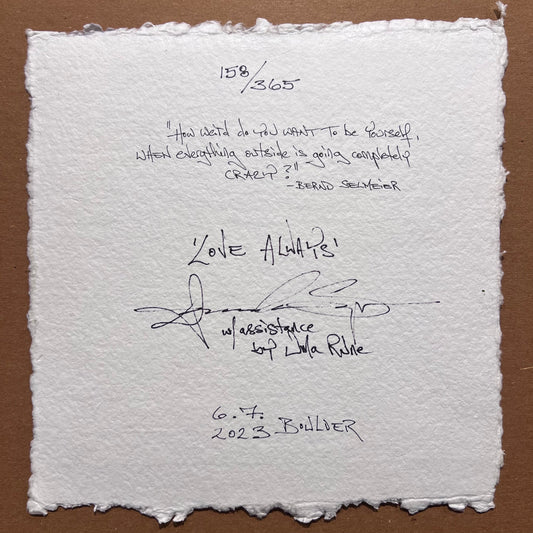 158/365
"How weird do you want to be yourself,
when everything outside is going completely
crazy?"
-Bernd Selmeier
'Love Always'
w/assistance
by
6.7.
2023 Boulder